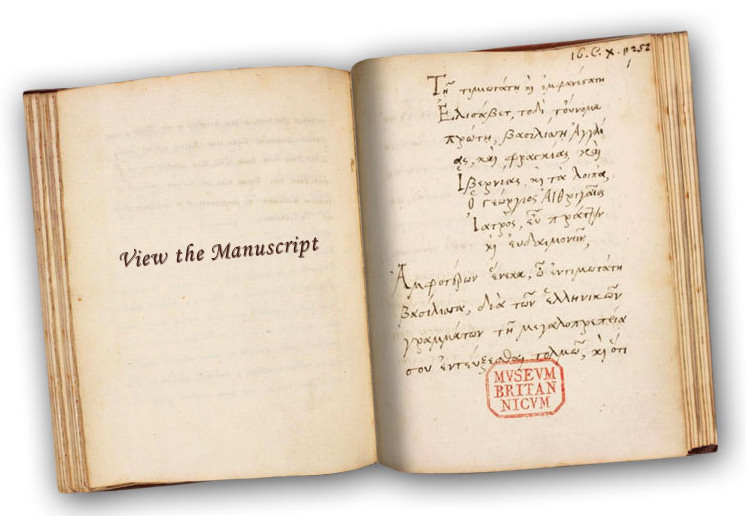 View the Manuscript
16. C. X. p 252
1
Τῇ τιμιωτάτῃ κὶ
Ἐλισάβετ, τοὔνομα
πρώτῃ, βασιλίσσῃ Ἀγγλί
ας, καὶ φρασκίας καὶ
Ἰβερνίας, κὶ τὰ λοιπὰ,
ὁ Γεώργιος Αἰθριγαῖος
Ἰατρος, εὖ πράττειν
κὶ εὐδαιμονεῖν,
Ἀμφοτέρων ἕνεκα, ὦ ἐντιμωτάτη
βασίλισσα, διὰ τῶν ἑλληνικῶν
γραμμάτων τῇ μεγαλοπρεπεία
σου ἐντεύξεσθαι τολμῶ, κὶ ὅτι
MVSEVM
BRITAN
NICVM